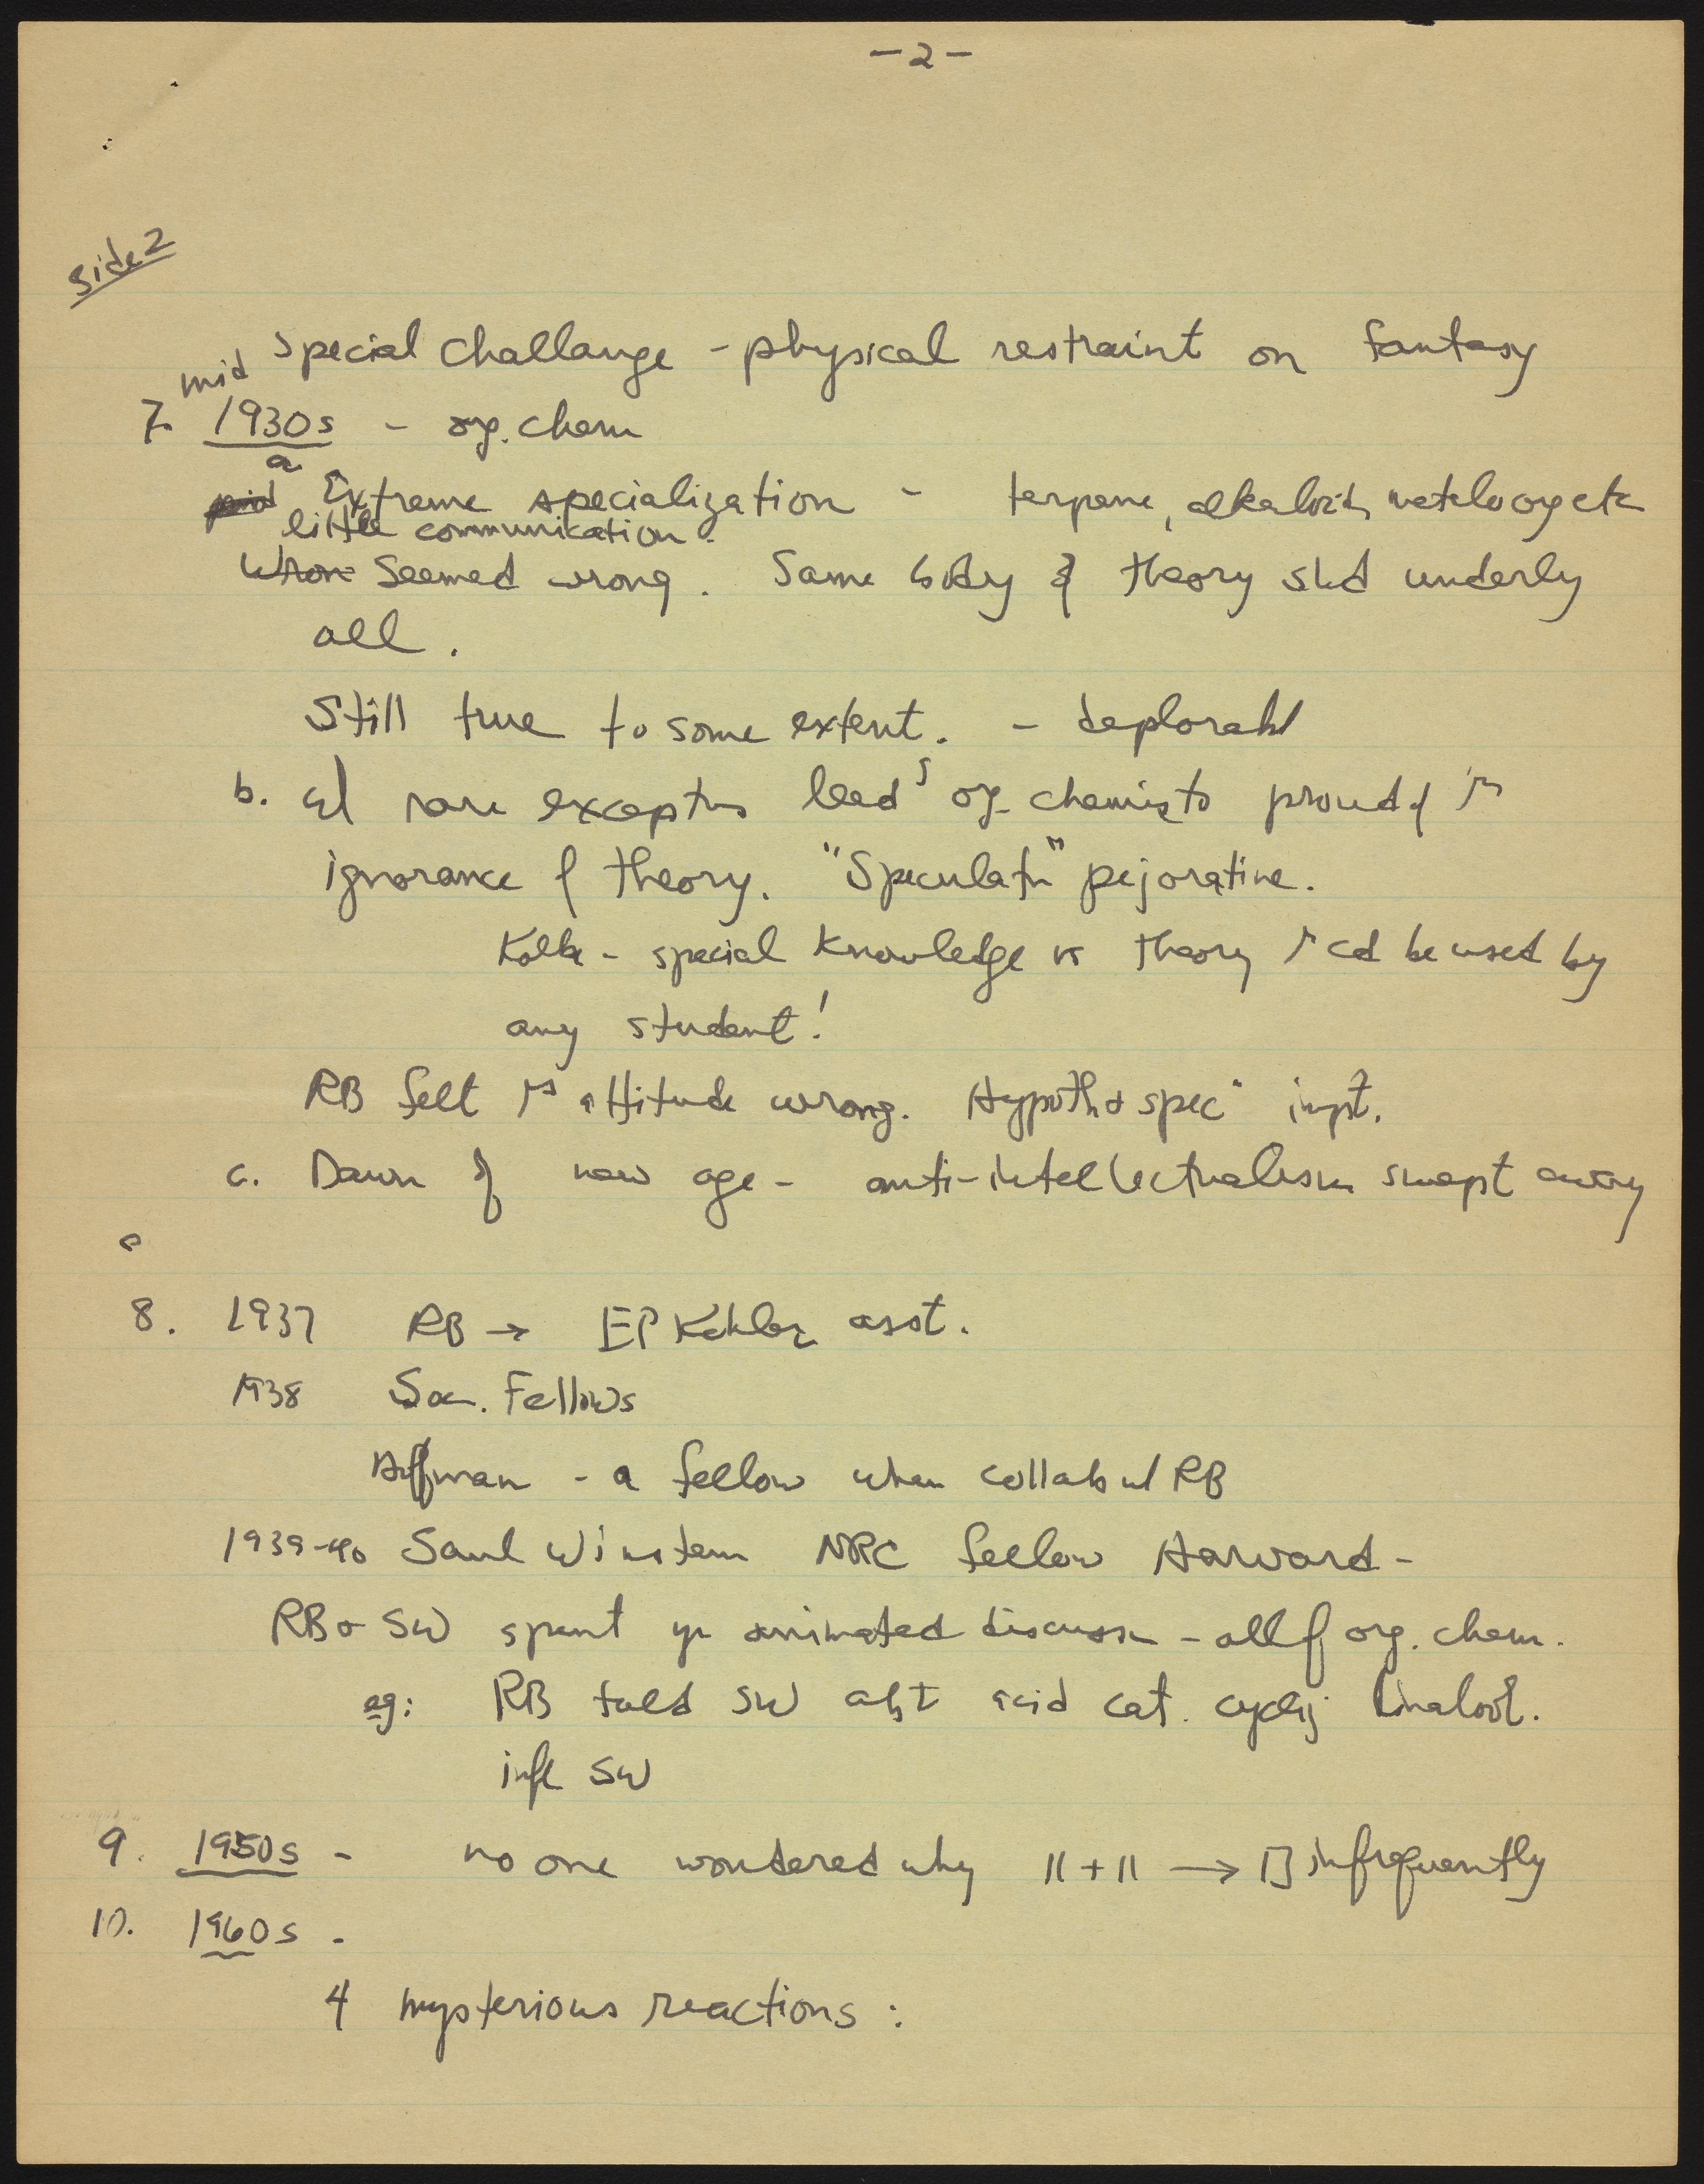 -2-
side 2
special challange - physical restraint on fantasy
mid
7. 1930s - org. chem
a
Extreme specialization - terpene, alkaloid,
little communication.
Wron Seemed wrong. Same body of theory shd underly
all.
Still true to some extent. - deplorabl
b. w/ rare exceptns lead org chemists proud of
ignorance of theory. "Speculatn" pejorative.
Kolbe - special knowledge vs theory cd be used by
any student!
RB felt attitude wrong. Hypoth & spec impt.
c. Dawn of new age - anti-intellectualism swept away
8. 1937 RB → EP Kohler asst.
1938 Soc. Fellows
Hoffman - a fellow when collab w/ RB
1939-40 Saul Winstein NRC fellow Harvard -
RB & SW spent yr animated discussn - all of org. chem.
eg: RB told SW abt acid cat. linalool.
infl SW
9. 1950s - no one wondered why || + || → □ infrequently
10. 1960s -
4 mysterious reactions: